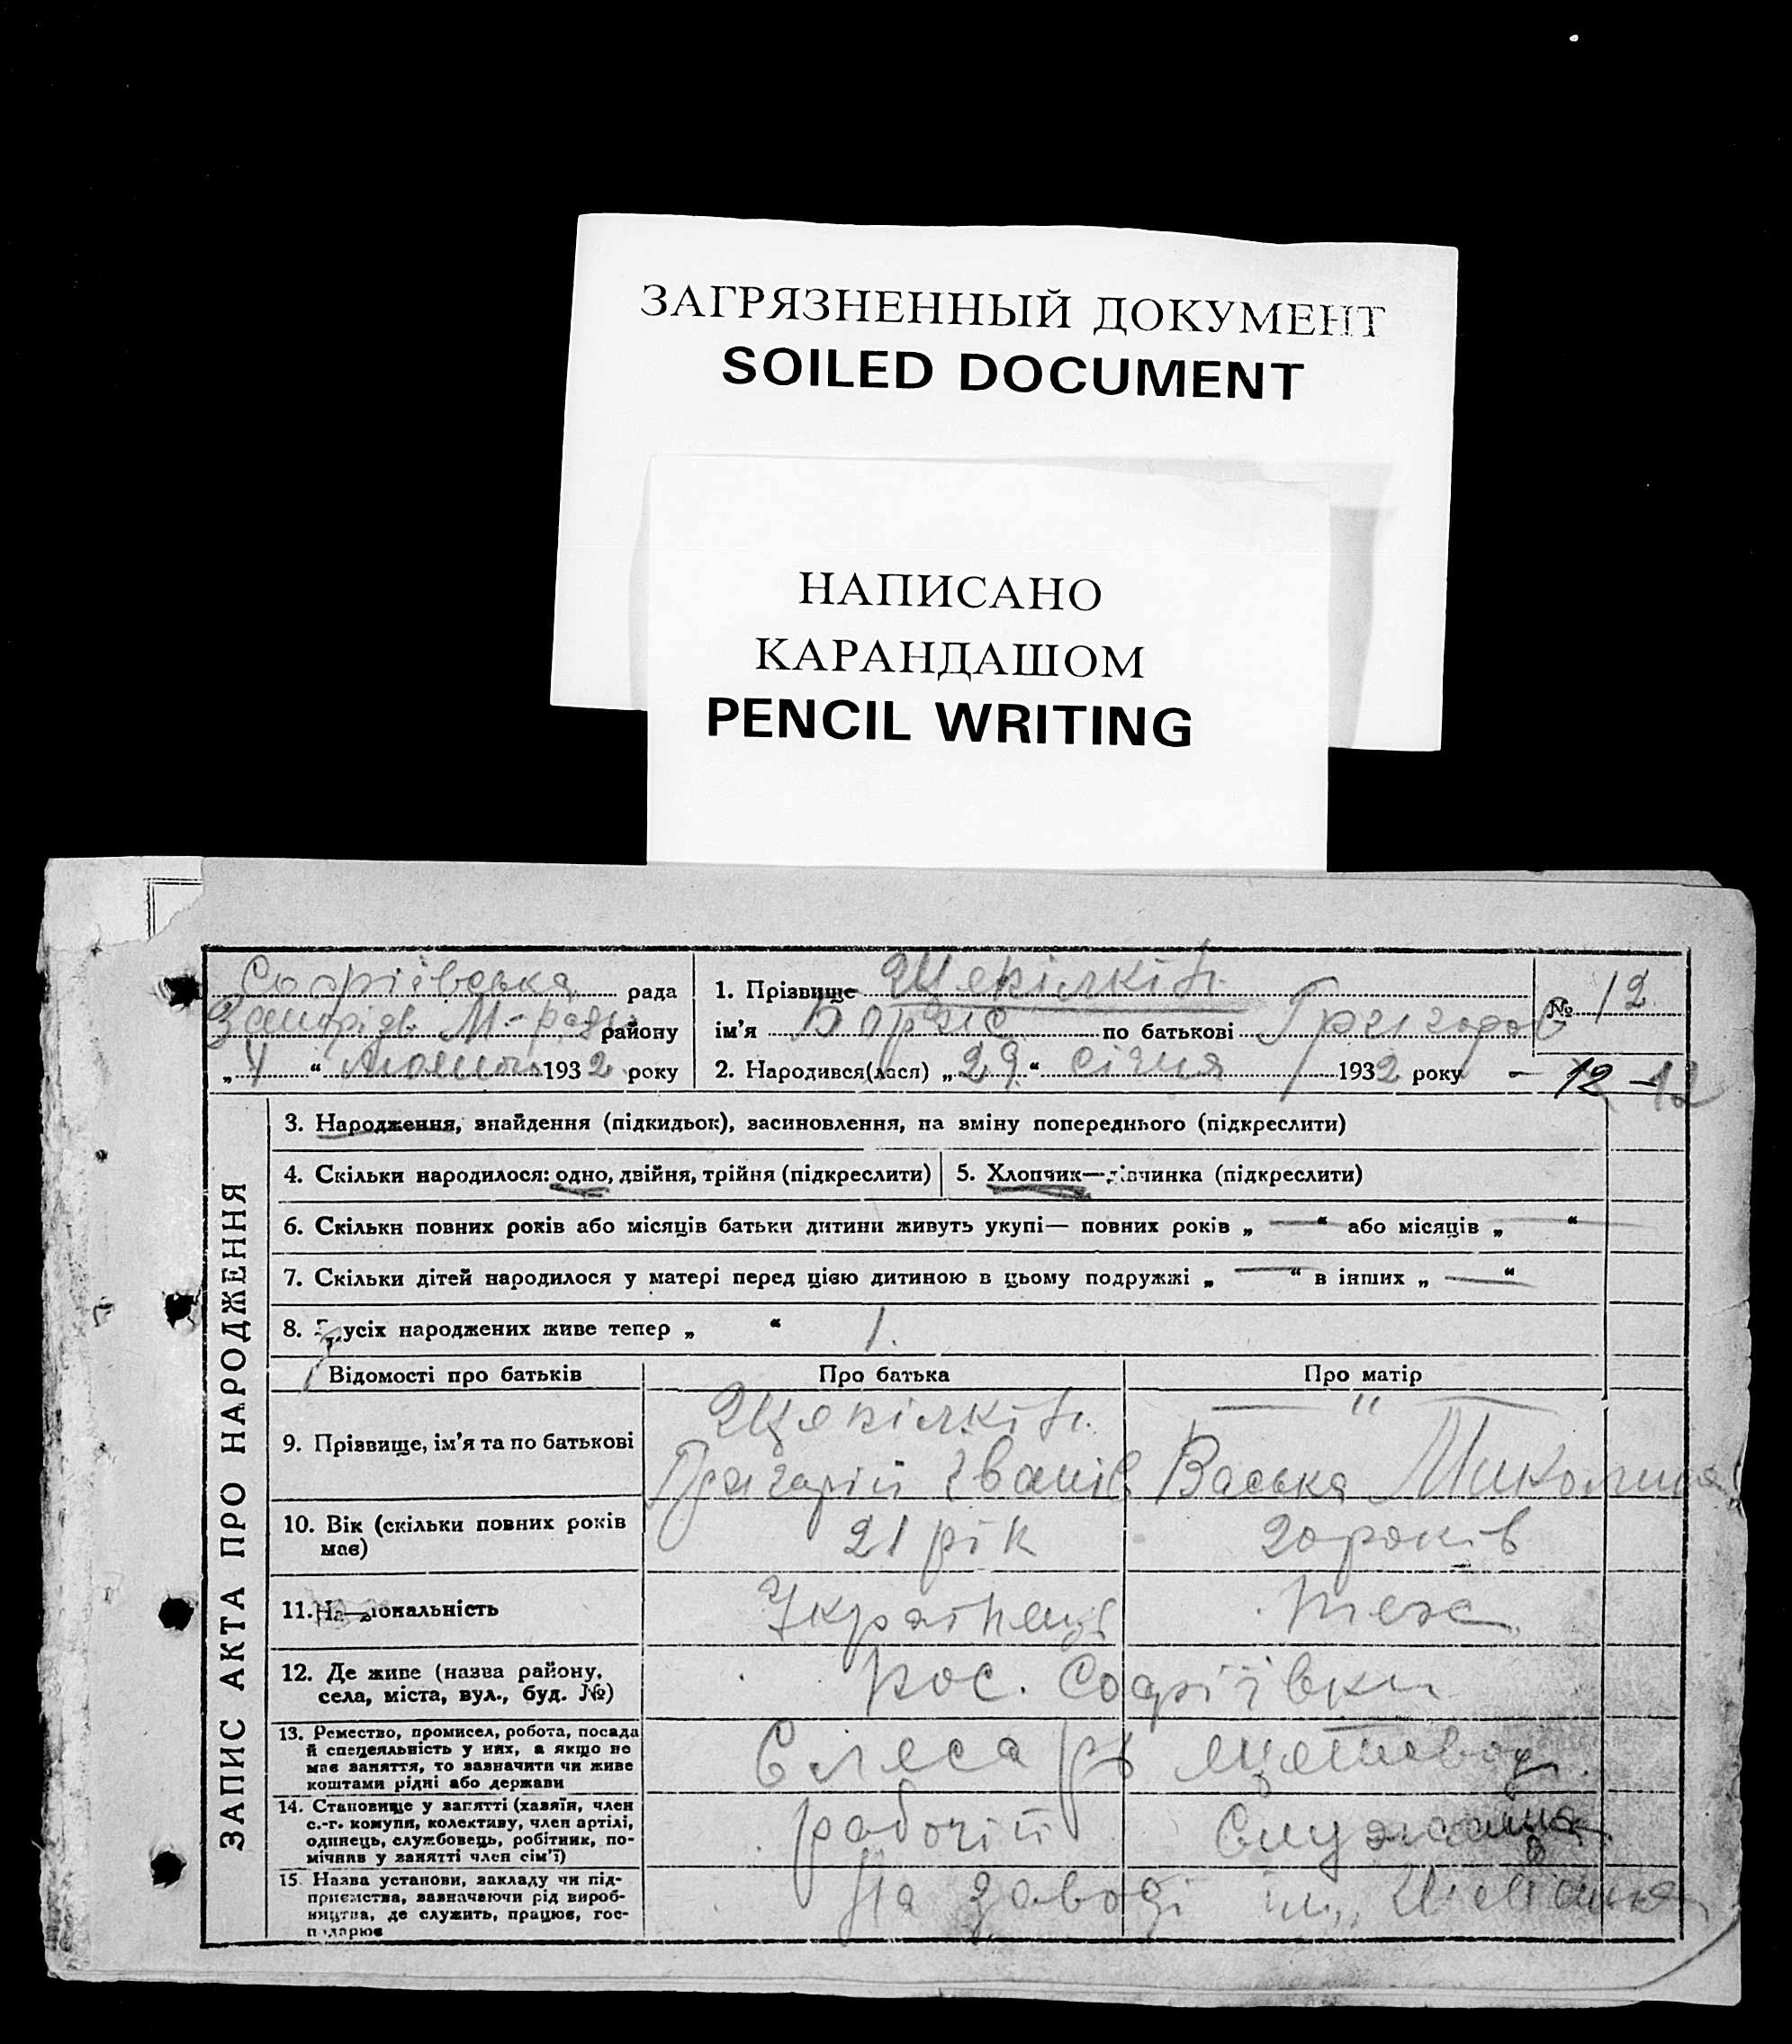 ЗАГРЯЗНЕННЫЙ ДОКУМЕНТ
SOILED DOCUMENT
НАПИСАНО
КАРАНДАШОМ
PENCIL WRITING
Софіівська рада
М.-ради району
„ “ лютого 1932 року
1. Прізвище
ім'я Борис по батькові Григоров
2. Народився(лася) „29“ січня 1932 року
№ 12
— 12 — 12
ЗАПИС АКТА ПРО НАРОДЖЕННЯ
3. Народження, знайдення (підкидьок), засиновлення, на зміну попереднього (підкреслити)
4. Скільки народилося: одно, двійня, трійня (підкреслити)
5. Хлопчик—дівчинка (підкреслити)
6. Скільки повних років або місяців батьки дитини живуть укупі— повних років „ — “ або місяців „ — “
7. Скільки дітей народилося у матері перед цією дитиною в цьому подружжі „ — “ в інших „ — “
8. З усіх народжених живе тепер „ “ 1.
Відомості про батьків
Про батька
Про матір
9. Прізвище, ім'я та по батькові
— " —
Григорій Іванів
Васька Микол
10. Вік (скільки повних років
має)
21 рік
20 років
11. Національність
Українець
теж
12. Де живе (назва району,
села, міста, вул., буд. №)
пос. Софіївки
13. Ремество, промисел, робота, посада
й спецеяльність у них, а якщо не
має заняття, то зазначити чи живе
коштами рідні або держави
Слесарь
14. Становище у занятті (хазяїн, член
с.-г. комуни, колективу, член артілі,
одинець, службовець, робітник, по-
мічник у занятті член сім'ї)
рабочій
Служаща
15. Назва установи, закладу чи під-
приємства, зазначаючи рід вироб-
ництва, де служить, працює, гос-
подарює
На заводі ім.